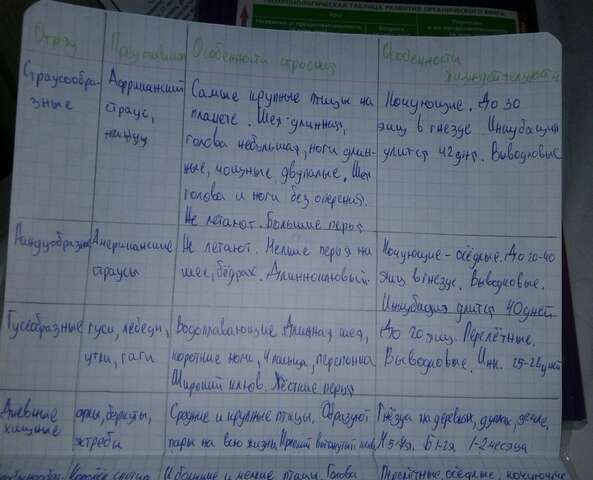 ГЕОХРОНОЛОГИЧЕСКАЯ ТАБЛИЦА РАЗВИТИЯ ОРГАНИЧЕСКОГО
Отряд
Представители
Особенности строения
Особенности
жизнедеятельности
Страусообра-
зные
Африканский
страус,
нанду
Самые крупные птицы на
планете. Шея длинная,
голова небольшая, ноги длин-
ные, мощные, двупалые. Шея
голова и ноги без оперения.
Не летают. Большие перья
Кочующие. До 30
яиц в гнезде Инкубация
длится 42 дня. Выводковые
Нандуобразные
Американские
страусы
Не летают. Мелкие перья на
шее, бёдрах. Длиннокрылый
Кочующие - осёдлые. До 20-40
яиц в гнезде. Выводковые.
Инкубация длится 40 дней
Гусеобразные
гуси, лебеди,
утки, гаги
Водоплавающие Длинная шея,
короткие ноги, 4 пальца, перепонка
Широкий клюв. Жёсткие перья
До 20 яиц. Перелётные.
Выводковые. Инк. 25-28 дней
Дневные
хищные
орлы, беркуты,
ястребы
Средние и крупные птицы. Образуют
пары на всю жизнь.
Гнёзда на деревьях, дуплах, земле.
1-2 месяца
И большие и мелкие птицы. Голова
Перелётные, осёдлые, кочующие